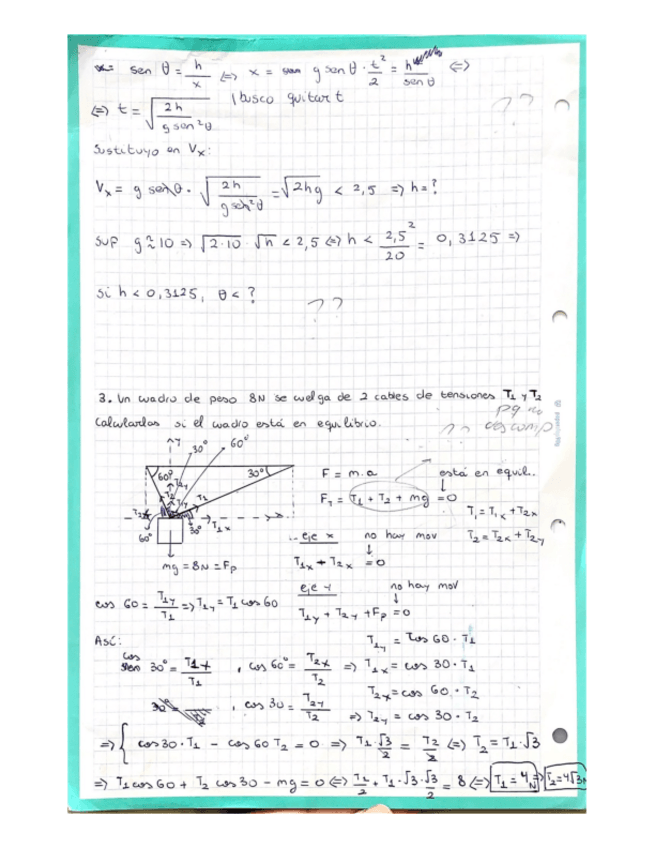 sen θ = h/x ⇔ x = g sen θ · t²/2 = h/sen θ ⇔
⇔ t = √(2h/g sen²θ) | busco quitar t
??
Sustituyo en Vx:
Vx = g senθ · √(2h/g sen²θ) = √2hg < 2,5 ⇒ h = ?
Sup g ≈ 10 ⇒ √2·10 · √h < 2,5 ⇔ h < 2,5²/20 = 0,3125 ⇒
si h < 0,3125, θ < ?
??
3. Un cuadro de peso 8N se cuelga de 2 cables de tensiones T1 y T2
Calcularlas si el cuadro está en equilibrio.
pq no
?? descomp
y
30° 60°
60° 30°
T2y
T2
T1y
T1
T2x
60° 30° T1x
mg = 8N = Fp
F = m.a está en equil..
FT = T1 + T2 + mg = 0
T1 = T1x + T2x
T2 = T2x + T2y
eje x no hay mov
T1x + T2x = 0
eje y no hay mov
T1y + T2y + Fp = 0
cos 60 = T1y/T1 ⇒ T1y = T1 cos 60
Así:
T1y = cos 60 · T1
cos 30° = T1x/T1, cos 60° = T2x/T2 ⇒ T1x = cos 30 · T1
T2x = cos 60 · T2
, cos 30 = T2y/T2 ⇒ T2y = cos 30 · T2
⇒ { cos 30 · T1 - cos 60 T2 = 0 ⇒ T1·√3/2 = T2/2 ⇔ T2 = T1·√3
⇒ T1 cos 60 + T2 cos 30 - mg = 0 ⇔ T1/2 + T1·√3·√3/2 = 8 ⇔ T1 = 4N ⇒ T2 = 4√3N